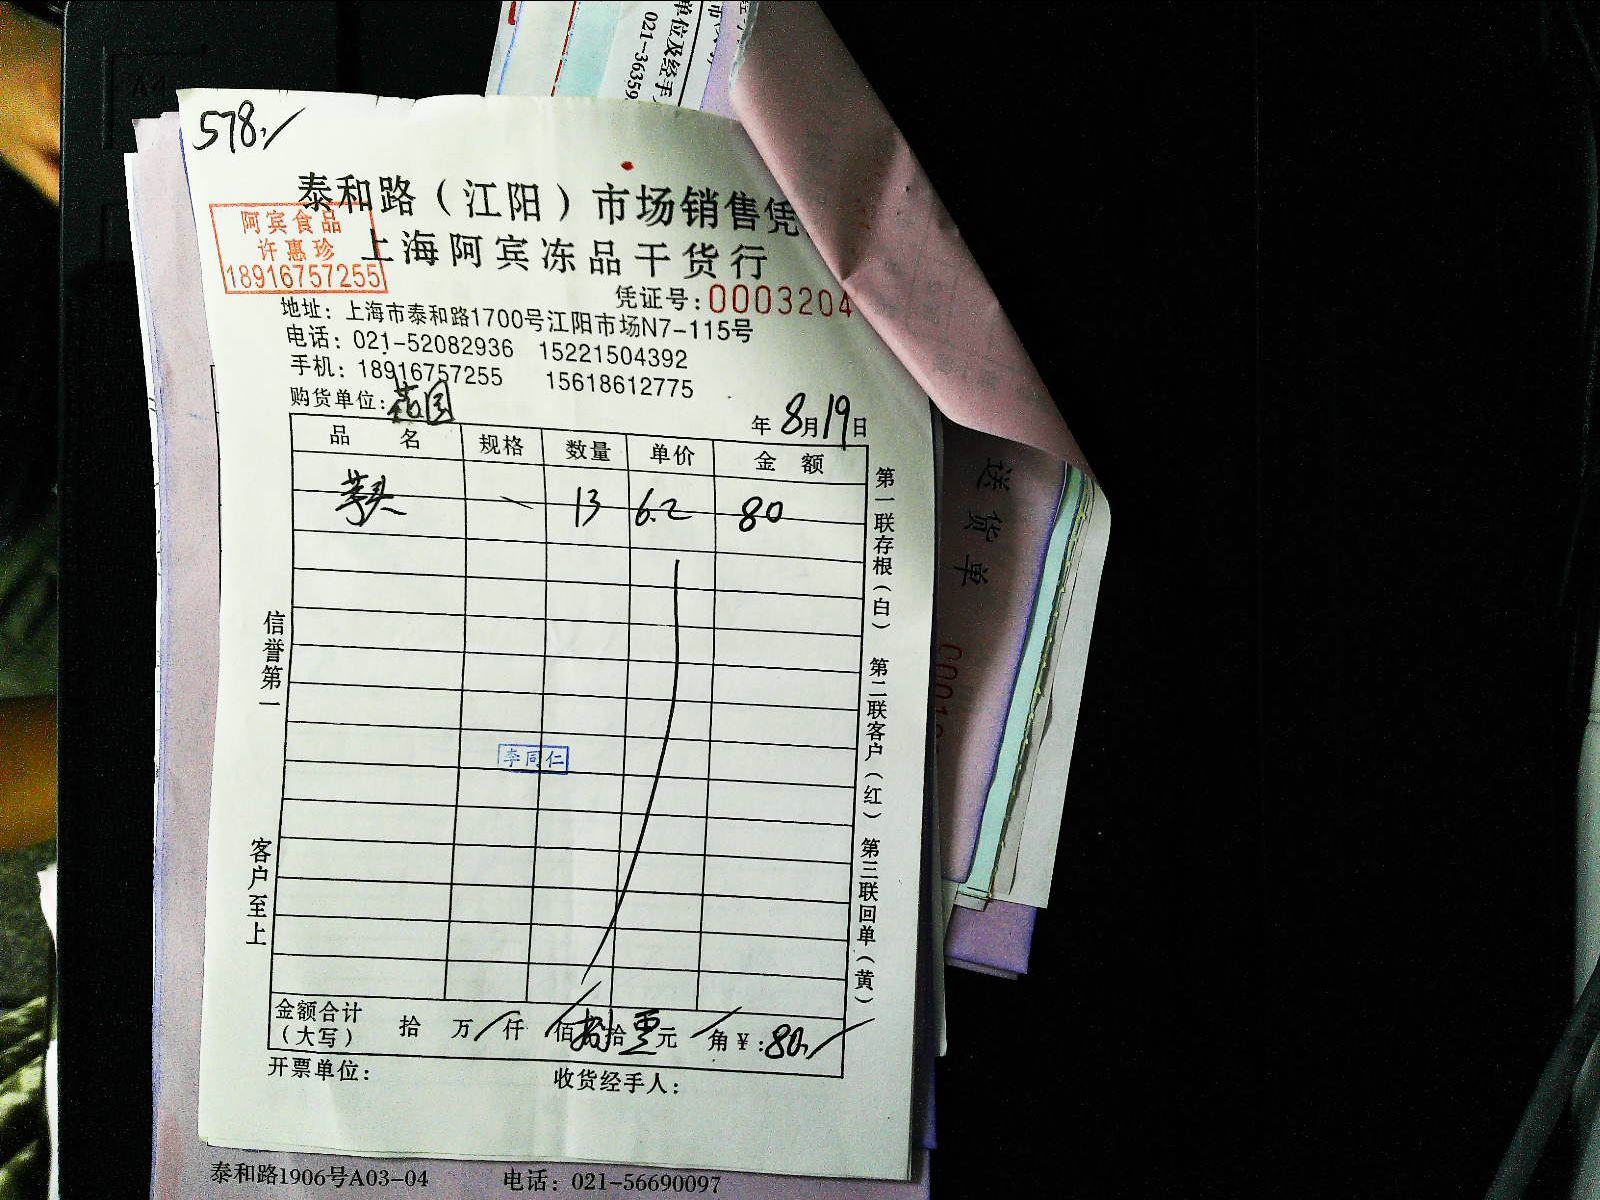 单位及经手
021-36359
578.
泰和路（江阳）市场销售凭
阿宾食品
许惠珍
18916757255
上海阿宾冻品干货行
凭证号:0003204
地址：上海市泰和路1700号江阳市场N7-115号
电话：021-52082936 15221504392
手机：18916757255 15618612775
购货单位:
年8月19日
品名 规格 数量 单价 金额
芋头 13 6.2 80
第一联存根（白） 第二联客户（红） 第三联回单（黄）
信誉第一
客户至上
李同仁
金额合计（大写） 拾 万 仟 佰 捌拾 零元 角 ¥:80.
开票单位: 收货经手人:
送货单
泰和路1906号A03-04 电话：021-56690097